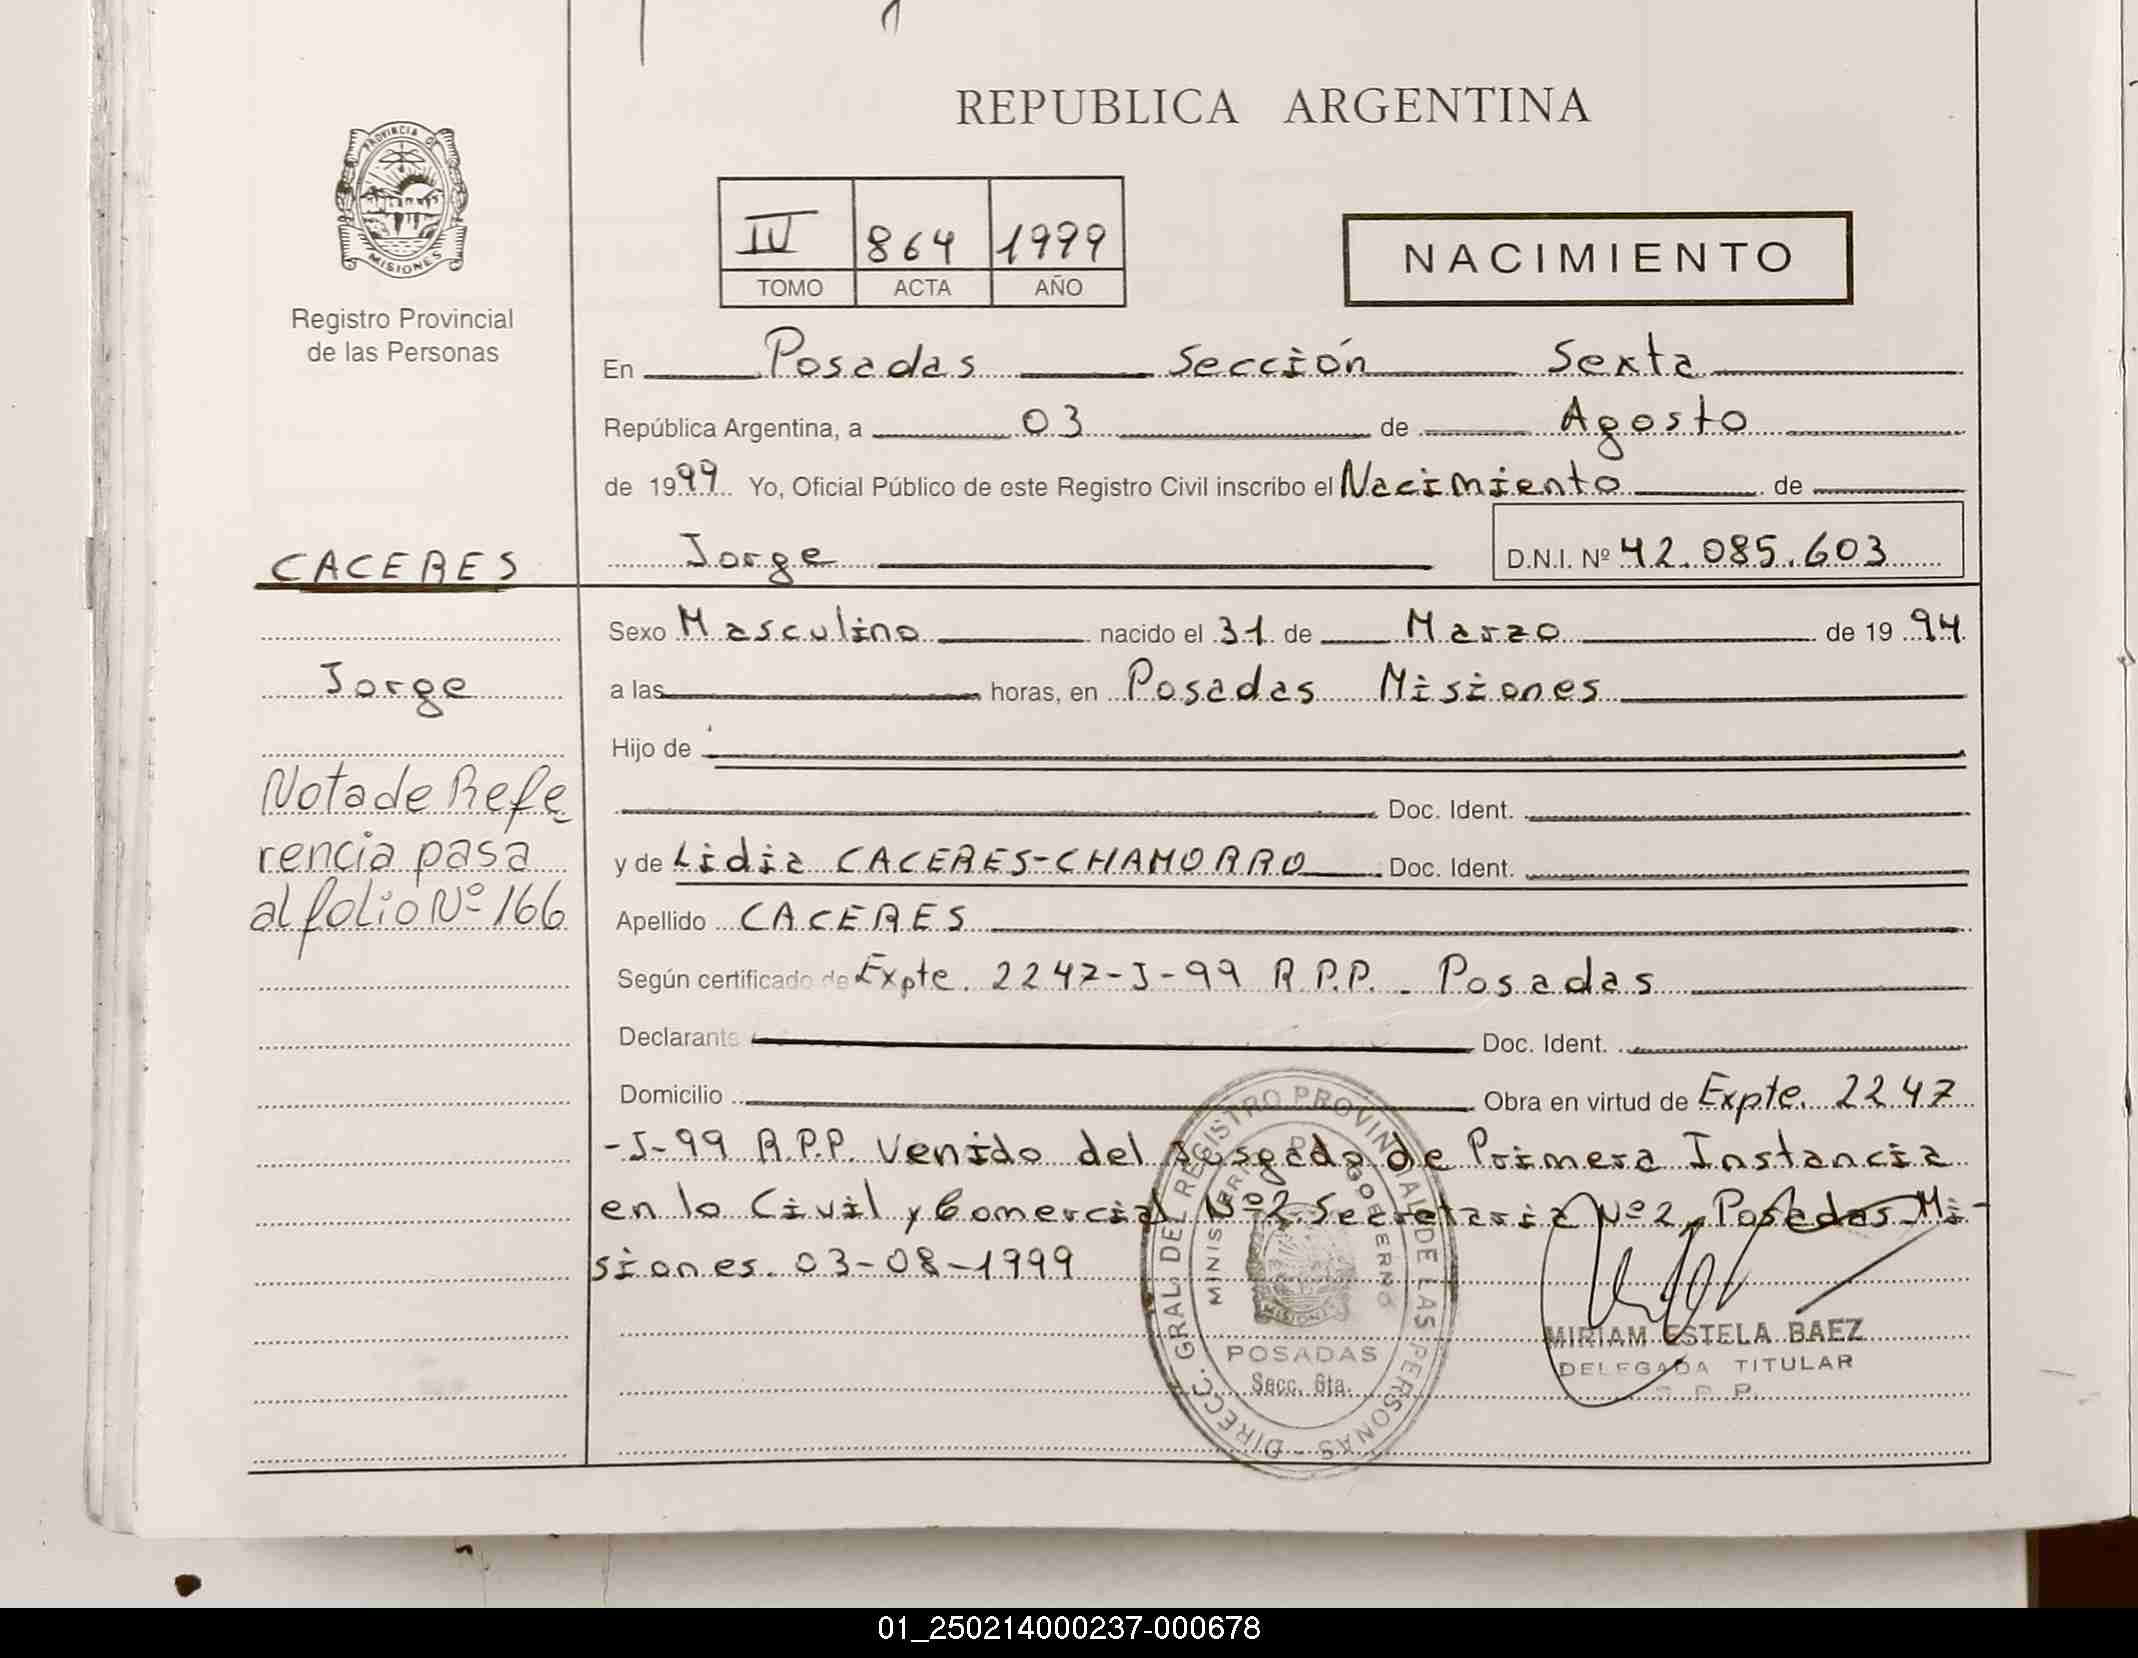 REPUBLICA ARGENTINA
PROVINCIA DE
MISIONES
Registro Provincial
de las Personas
IV 864 1999
TOMO ACTA AÑO
NACIMIENTO
En Posadas Sección Sexta
República Argentina, a 03 de Agosto
de 1999 Yo, Oficial Público de este Registro Civil inscribo el Nacimiento de
Jorge D.N.I. Nº 42.085.603
CACERES
Jorge
Nota de Refe
rencia pasa
al folio Nº 166
Sexo Masculino nacido el 31 de Marzo de 1994
a las horas, en Posadas Misiones
Hijo de
Doc. Ident.
y de Lidia CACERES-CHAMORRO Doc. Ident.
Apellido CACERES
Según certificado de Expte. 2247-J-99 R.P.P. - Posadas
Declarante Doc. Ident.
Domicilio Obra en virtud de Expte. 2247
-J-99 R.P.P. Venido del Jusgado de Primera Instancia
en lo Civil y Comercial Nº2 Secretaria Nº2, Posadas Mi-
siones. 03-08-1999
DIRECC. GRAL. DEL REGISTRO PROVINCIAL DE LAS PERSONAS -
MINISTERIO DE GOBIERNO
MISIONES
POSADAS
Secc. 6ta.
MIRIAM ESTELA BAEZ
DELEGADA TITULAR
01_250214000237-000678